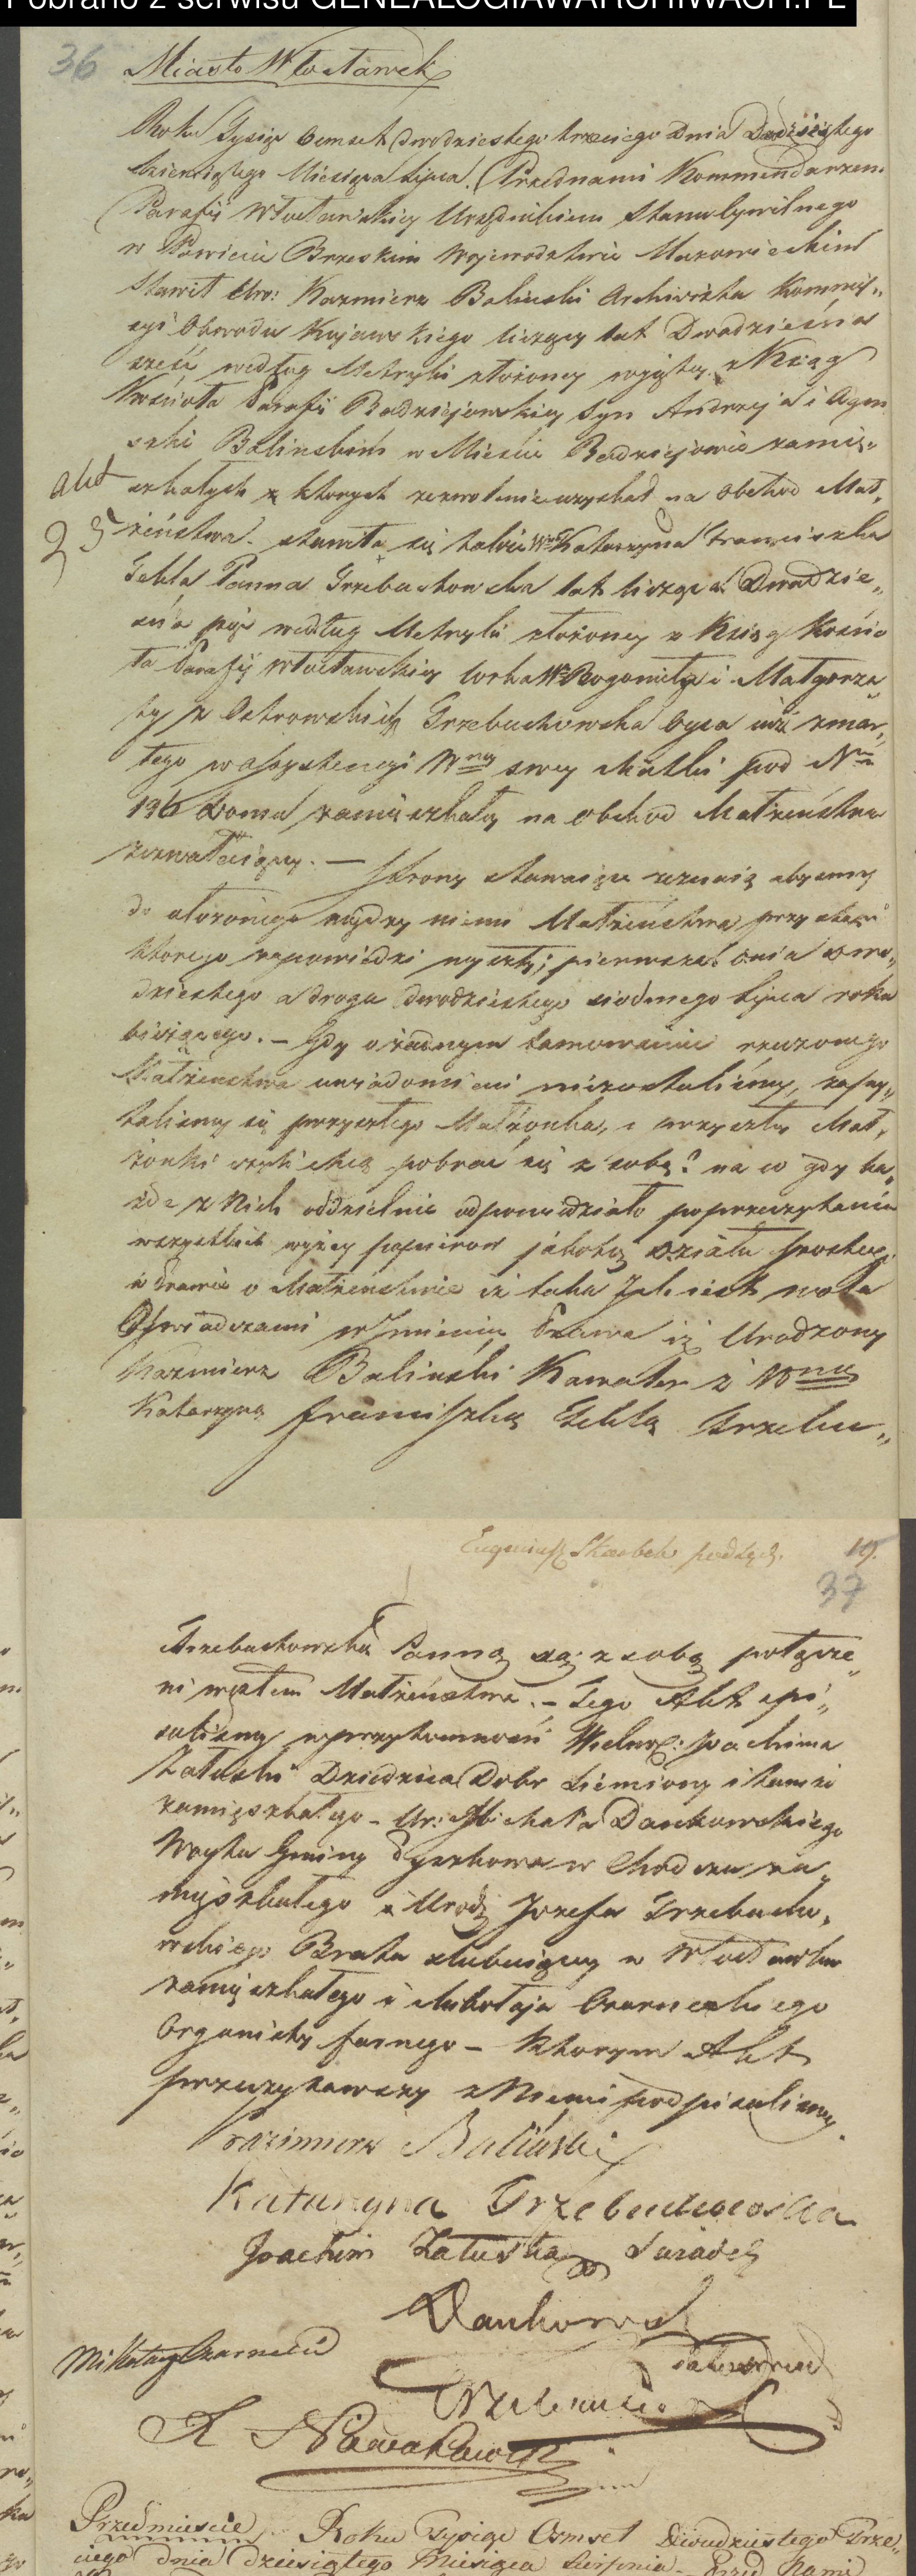 Pobrano z serwisu GENEALOGIAWARCHIWACH.PL
36 Miasto Włocławek
Roku Tysiąc Osmset dwódziestego trzeciego Dnia Dwódziestego
dziewiątego Miesiąca Lipca. Przednami Kommendarzem
Parafii Włocławskiey Urzędnikiem Stanu Cywilnego
w Powiecie Brzeskim Wojewodztwie Mazowieckim
Stawił Uro: Kazmierz Baliński Archiwista Kommis„
syi Obwodu Kujawskiego liczący lat Dwadzieścia
sześć według Metryki złożoney wyjętey z Ksiąg
Kościoła Parafii Radziejowskiey Syn Andrzeja i Agni
szki Balinskich w Mieście Radziejowie zamie„
akt
szkałych z ktorych zezwolenie uzyskał na obchod Mał„
25
żeństwa. stawiła się także Wna Katarzyna Franciszka
Tekla Panna Trzebuchowska lat licząca Dwadzie„
ścia pięć według Metryki złożoney z Ksiąg Kościo
ła Parafii Włocławskiey Corka W Bogomiła i Małgorza
ty z Ostrowskich Trzebuchowska Oyca już zmar„
łego w assystencyi Wney swey Matki pod Nrm
196 Domu zamieszkałey na obchod Małżeństwa
zezwalaiącey. — Strony stawaiące wzywaią abysmy
do ułożonego między niemi Małżeństwa przystąpili
ktorego zapowiedzi wyszły; pierwsza dnia dwu„
dziestego a druga dwodziestego siodmego Lipca roku
bieżącego. – Gdy o żadnym tamowaniu rzeczonego
Małżeństwa uwiadomieni niezostaliśmy, zapy„
taliśmy się przyszłego Małżonka, i przyszłey Mał„
żonki czyli chcą pobrać się z sobą? na co gdy ka„
żde z Nich oddzielnie odpowiedziało poprzeczytaniu
wszystkich wyżey papierow jakoteż działu szostego
w Prawie o Małżeństwie iż taka Ich iest wola
Oświadczamy w Imieniu Prawa iż Urodzony
Kazmierz Baliński Kawaler i Wna
Katarzyna Franciszka Tekla Trzebu„
Eugeniusz Skarbek podsęd. 19.
37
Trzebuchowska Panna są z sobą połącze„
ni węzłem Małżeństwa. – Tego Akt spi„
saliśmy w przytomności Wielmo: Joachima
Załuski Dziedzica Dobr Ziemiony i tamże
zamięszkałego – Ur: Michała Dankowskiego
Woyta Gminy w Chodczu za„
mięszkałego i Urodz Jozefa Trzebucho„
wskiego Brata slubuiącey w Włocławku
zamięszkałego i Mikołaja Czarneckiego
Organisty farnego – Ktorym Akt
przeczytawszy z Niemi podpisaliśmy
Kazimierz Baliński
Katarzyna Trzebuchowska
Joachim Załuska Swiadek
Dankowsk
Mikołay Czarnecki
Trzebuchowsk
X
Przedmiescie. Roku Tysiąc Osmset Dwudziestego Trze„
ciego dnia dziesiątego Miesiąca Sierpnia – Przed Nami